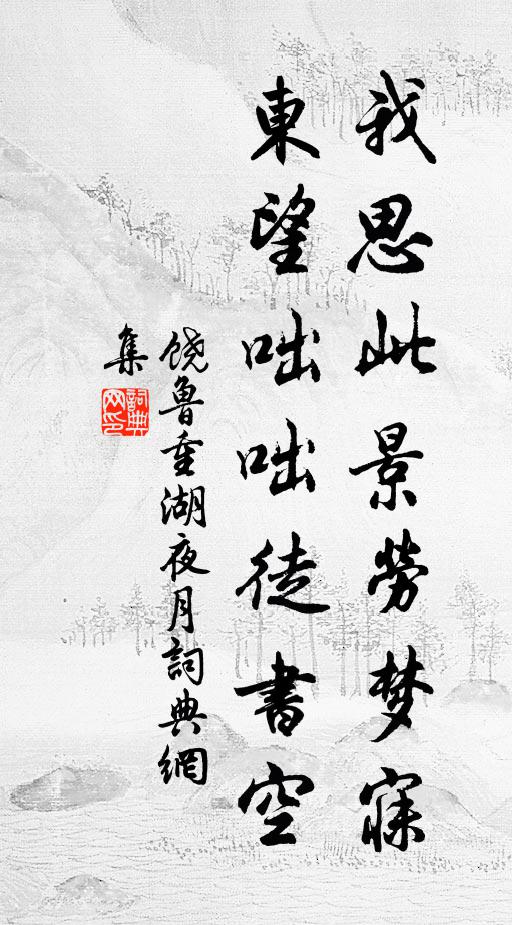 我思此景劳梦寐
東望咄咄徒書空
饶鲁重湖夜月詞典網
集
詞典
网印